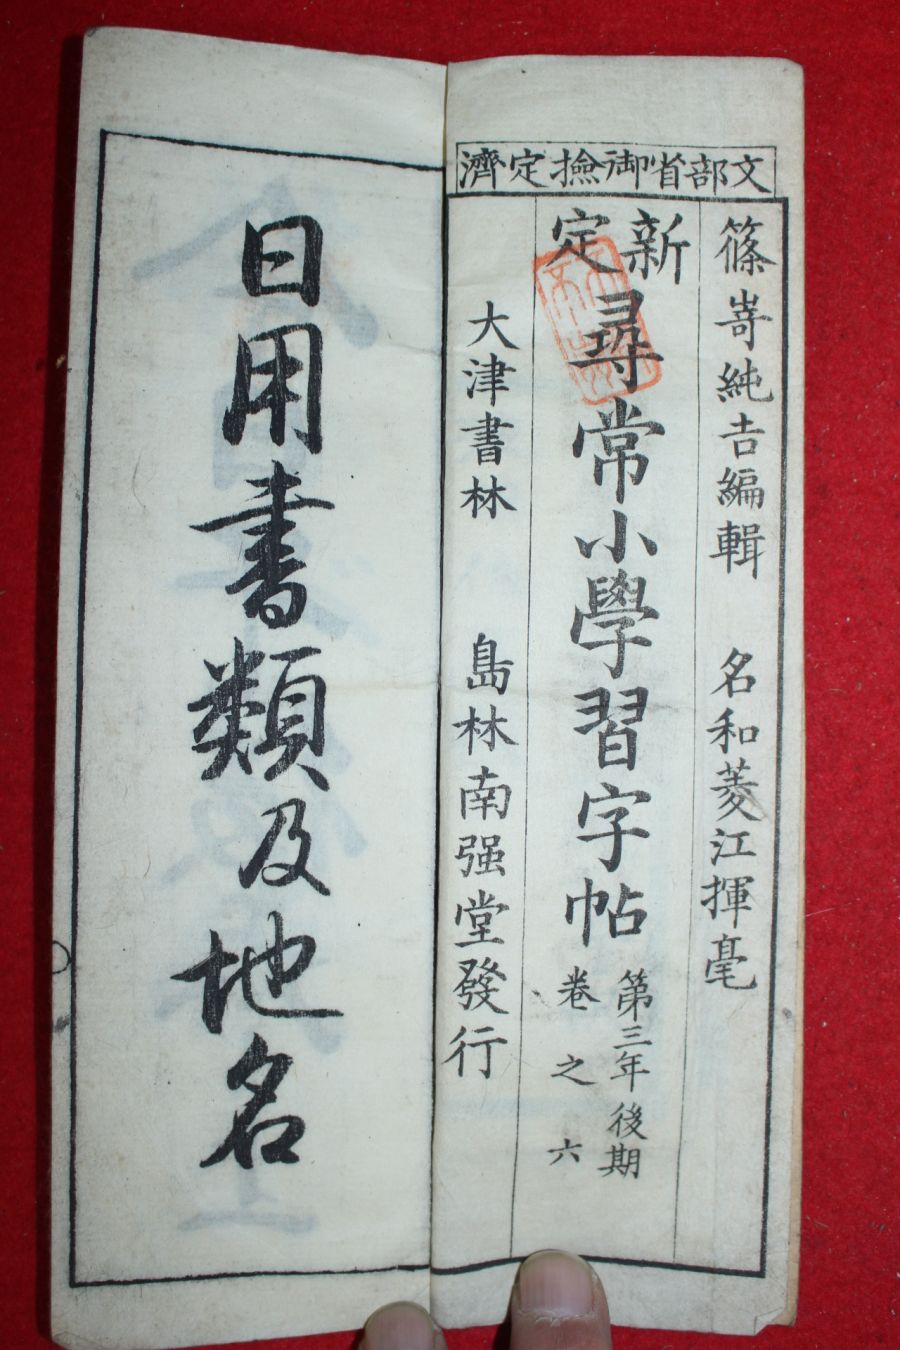 文部省御撿定濟
篠嵜純吉編輯 名和菱江揮毫
新定
尋常小學習字帖
第三年後期
卷之六
大津書林 島林南强堂發行
日用書類及地名